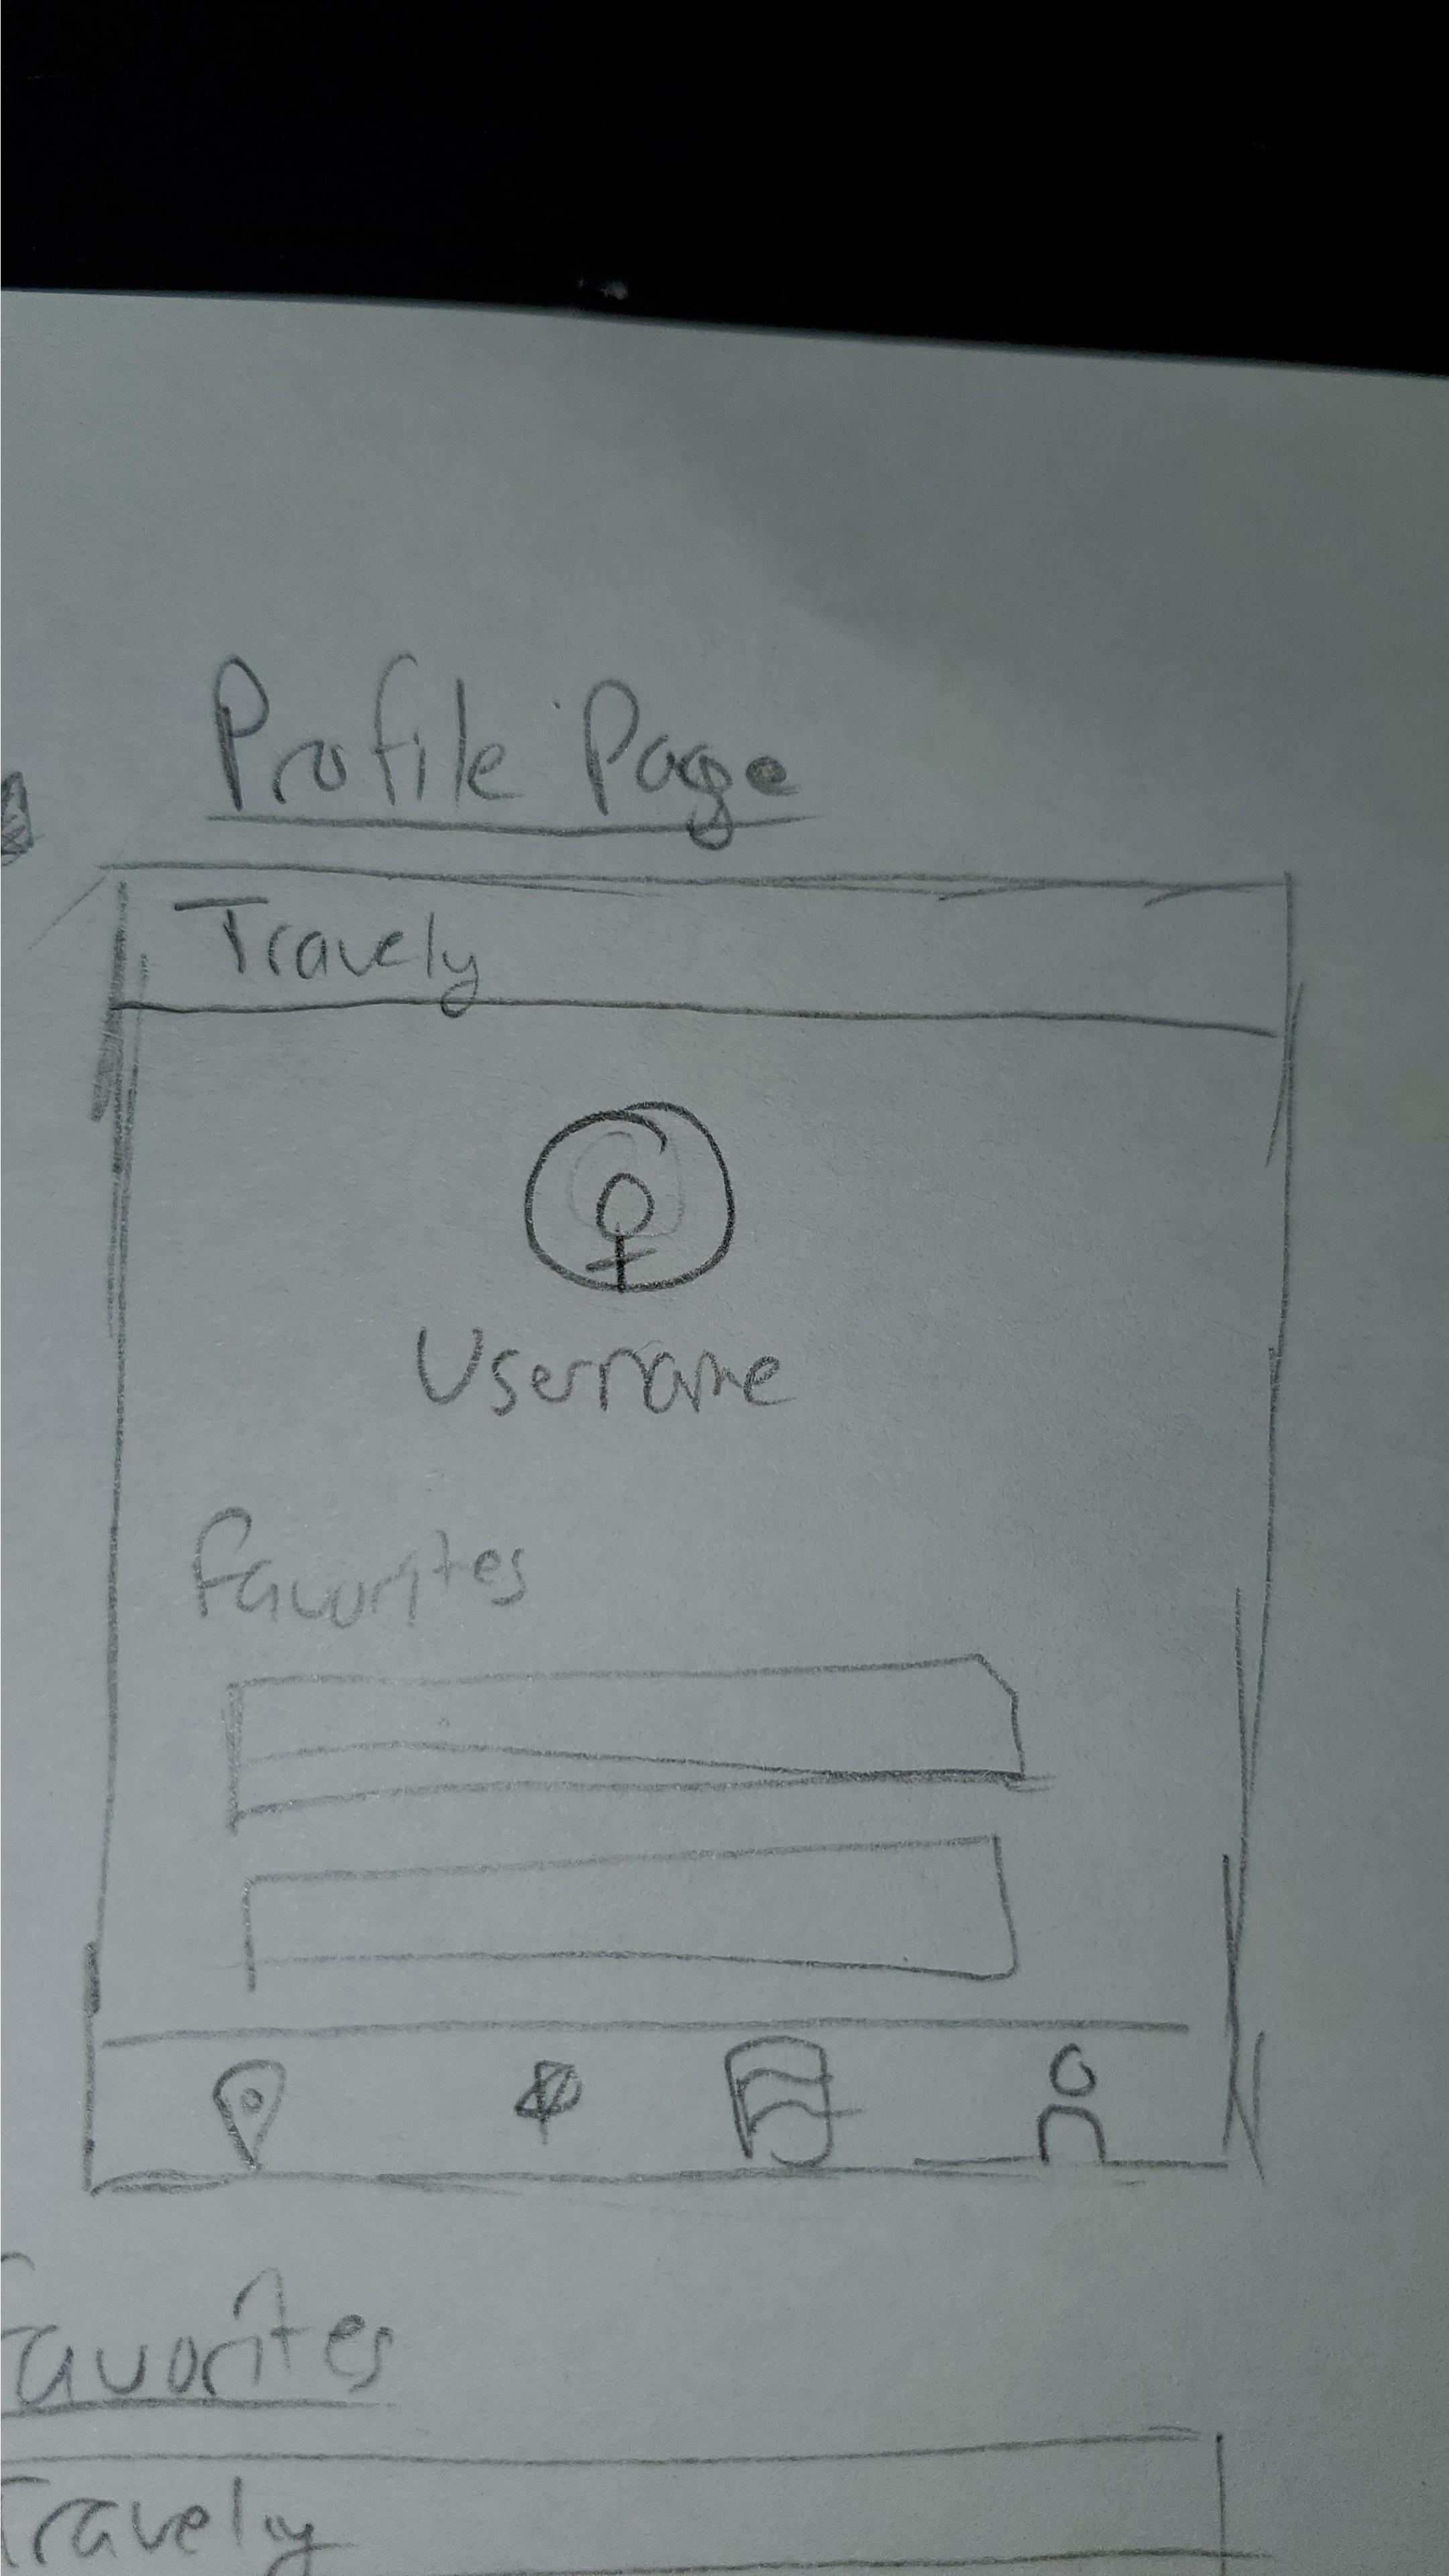 Profile Page
Travely
Username
Favorites
Favorites
Travely